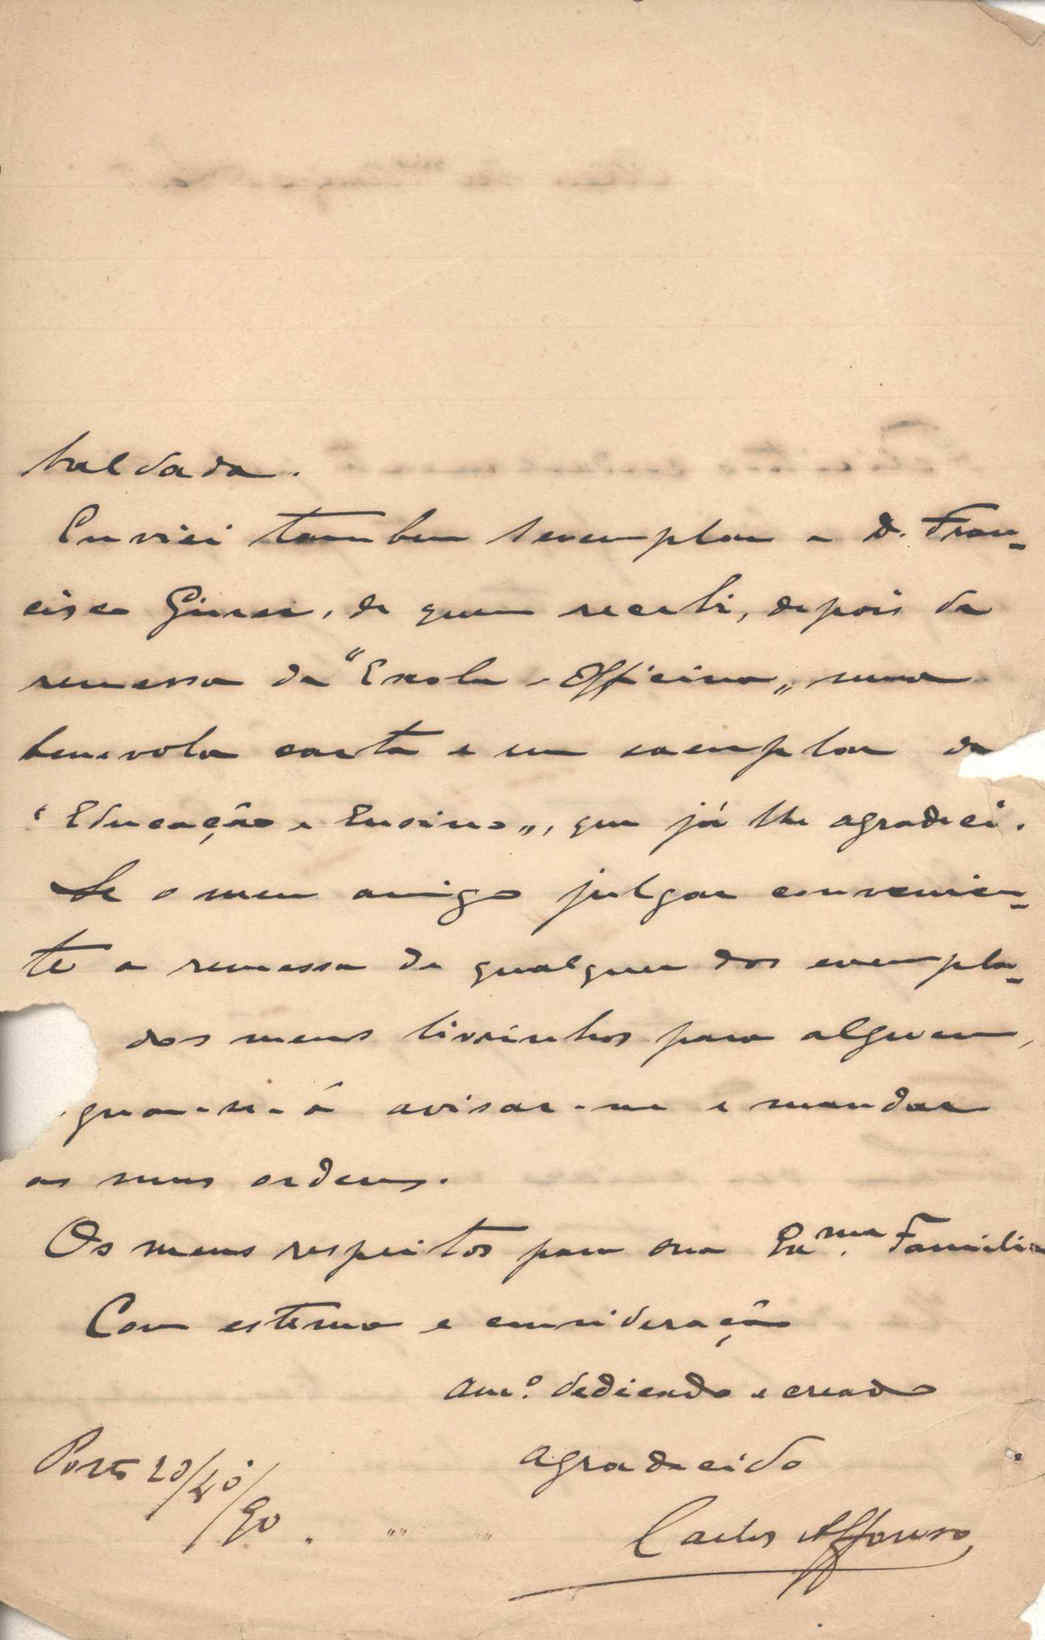 baldada.
Enviei tambem 1 exemplar a D. Fran-
cisco Giner, de quem recebi, depois da
remessa da "Escola-Officina", uma
benevola carta e um exemplar da
"Educação e Ensino", que já lhe agradeci.
Se o meu amigo julgar convenien-
te a remessa de qualquer dos exempla-
dos meus livrinhos para alguem,
gnar-se-á avisar-me e mandar
as suas ordens.
Os meus respeitos para sua Exma. Familia
Com estima e consideração
amº. dedicado e creado
agradecido
Porto 20/10/90.
Carlos Affonso